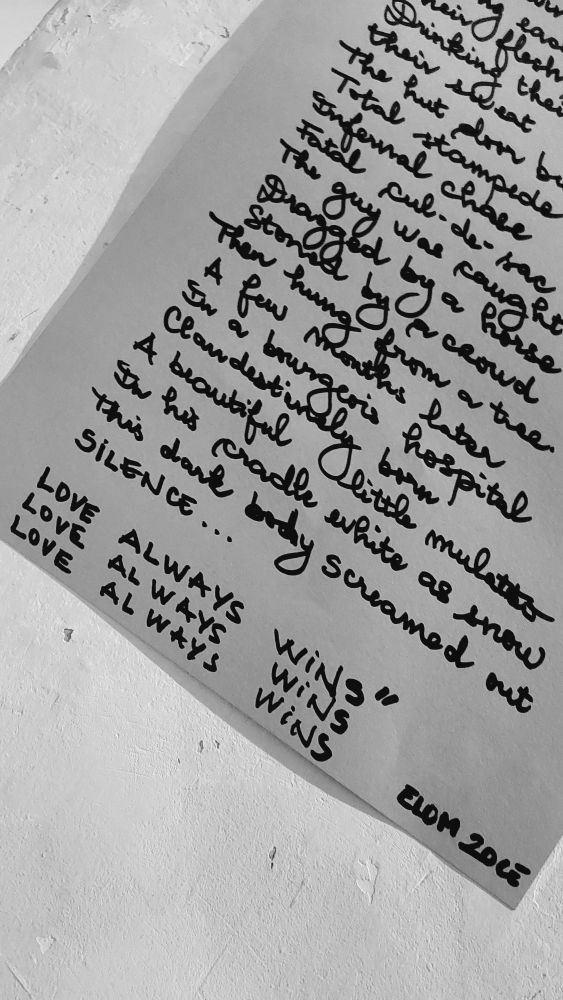 their flesh
Drinking their
their sweat
The hut door
Total stampede
Infernal chase
Fatal cul-de-sac
The guy was caught
Dragged by a horse
Stoned by a crowd
Then hung from a tree.
A few months later
In a bourgeois hospital
Clandestinely born
A beautiful little mulatto
In his cradle white as snow
This dark body screamed out
SiLENCE...
LOVE ALWAYS WiNS"
LOVE ALWAYS WiNS
LOVE ALWAYS WiNS
ELOM 20CE